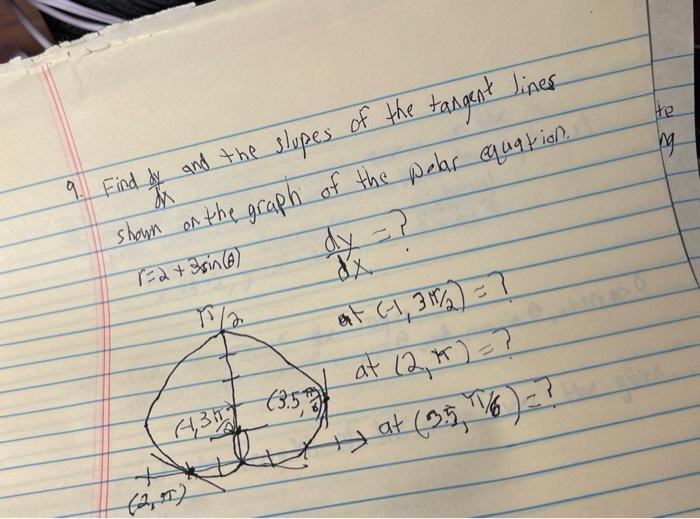 9. Find dy/dx and the slopes of the tangent lines
shown on the graph of the polar equation.
r=2+3sin(θ)
dy/dx = ?
at (-1, 3π/2) = ?
at (2, π) = ?
at (3.5, π/6) = ?
π/2
(-1, 3π/2)
(3.5, π/6)
(2, π)
te
ng